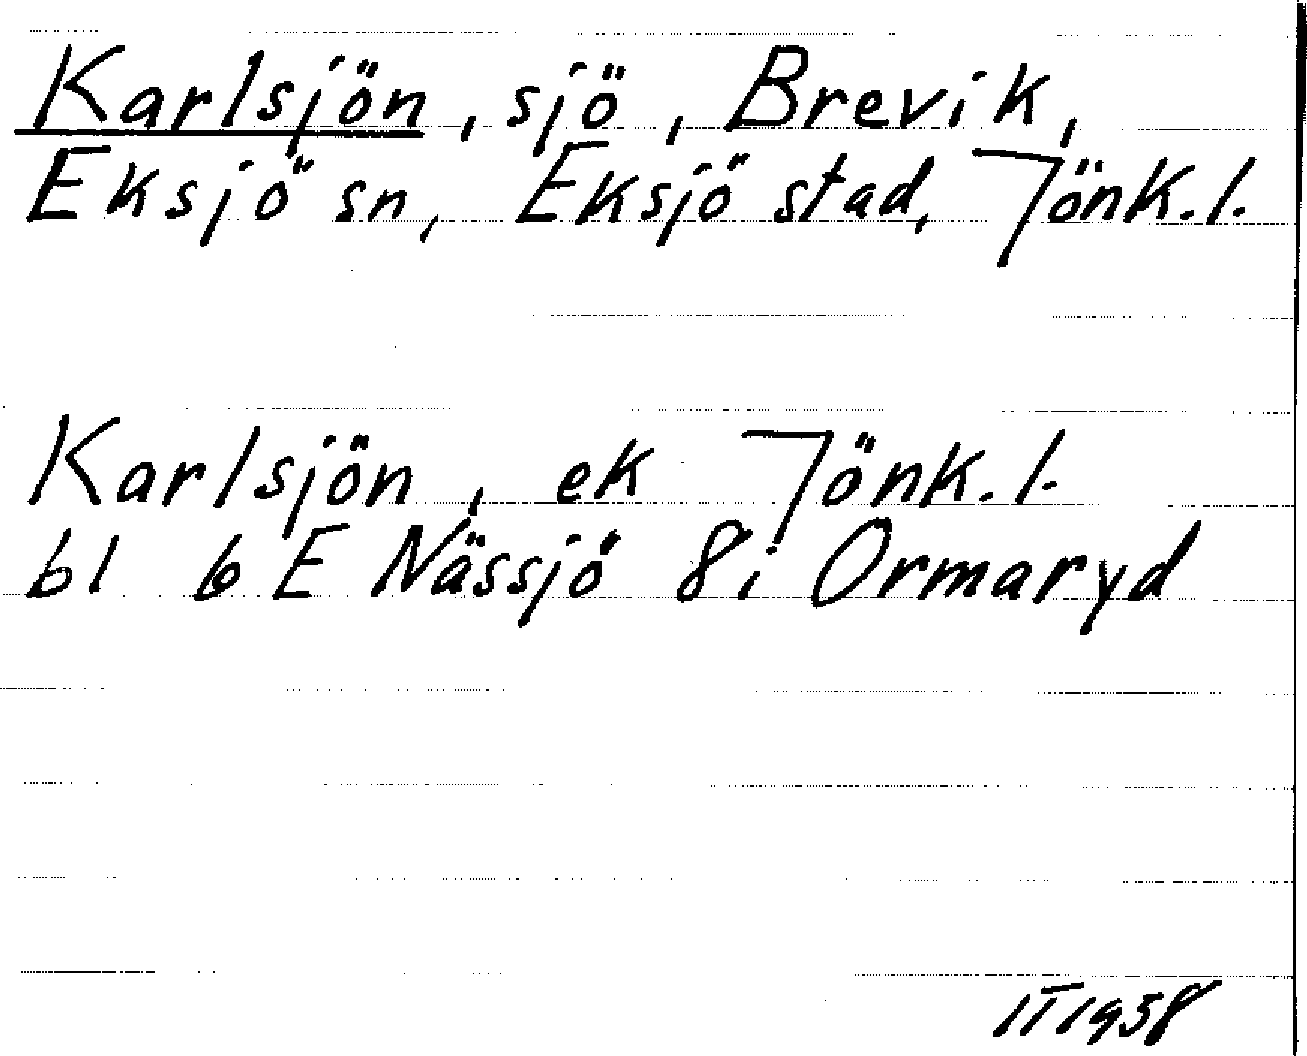 Karlsjön, sjö, Brevik,
Eksjö sn, Eksjö stad, Jönk.l.
Karlsjön, ek Jönk.l.
bl 6 E Nässjö 8i Ormaryd
IT 1958